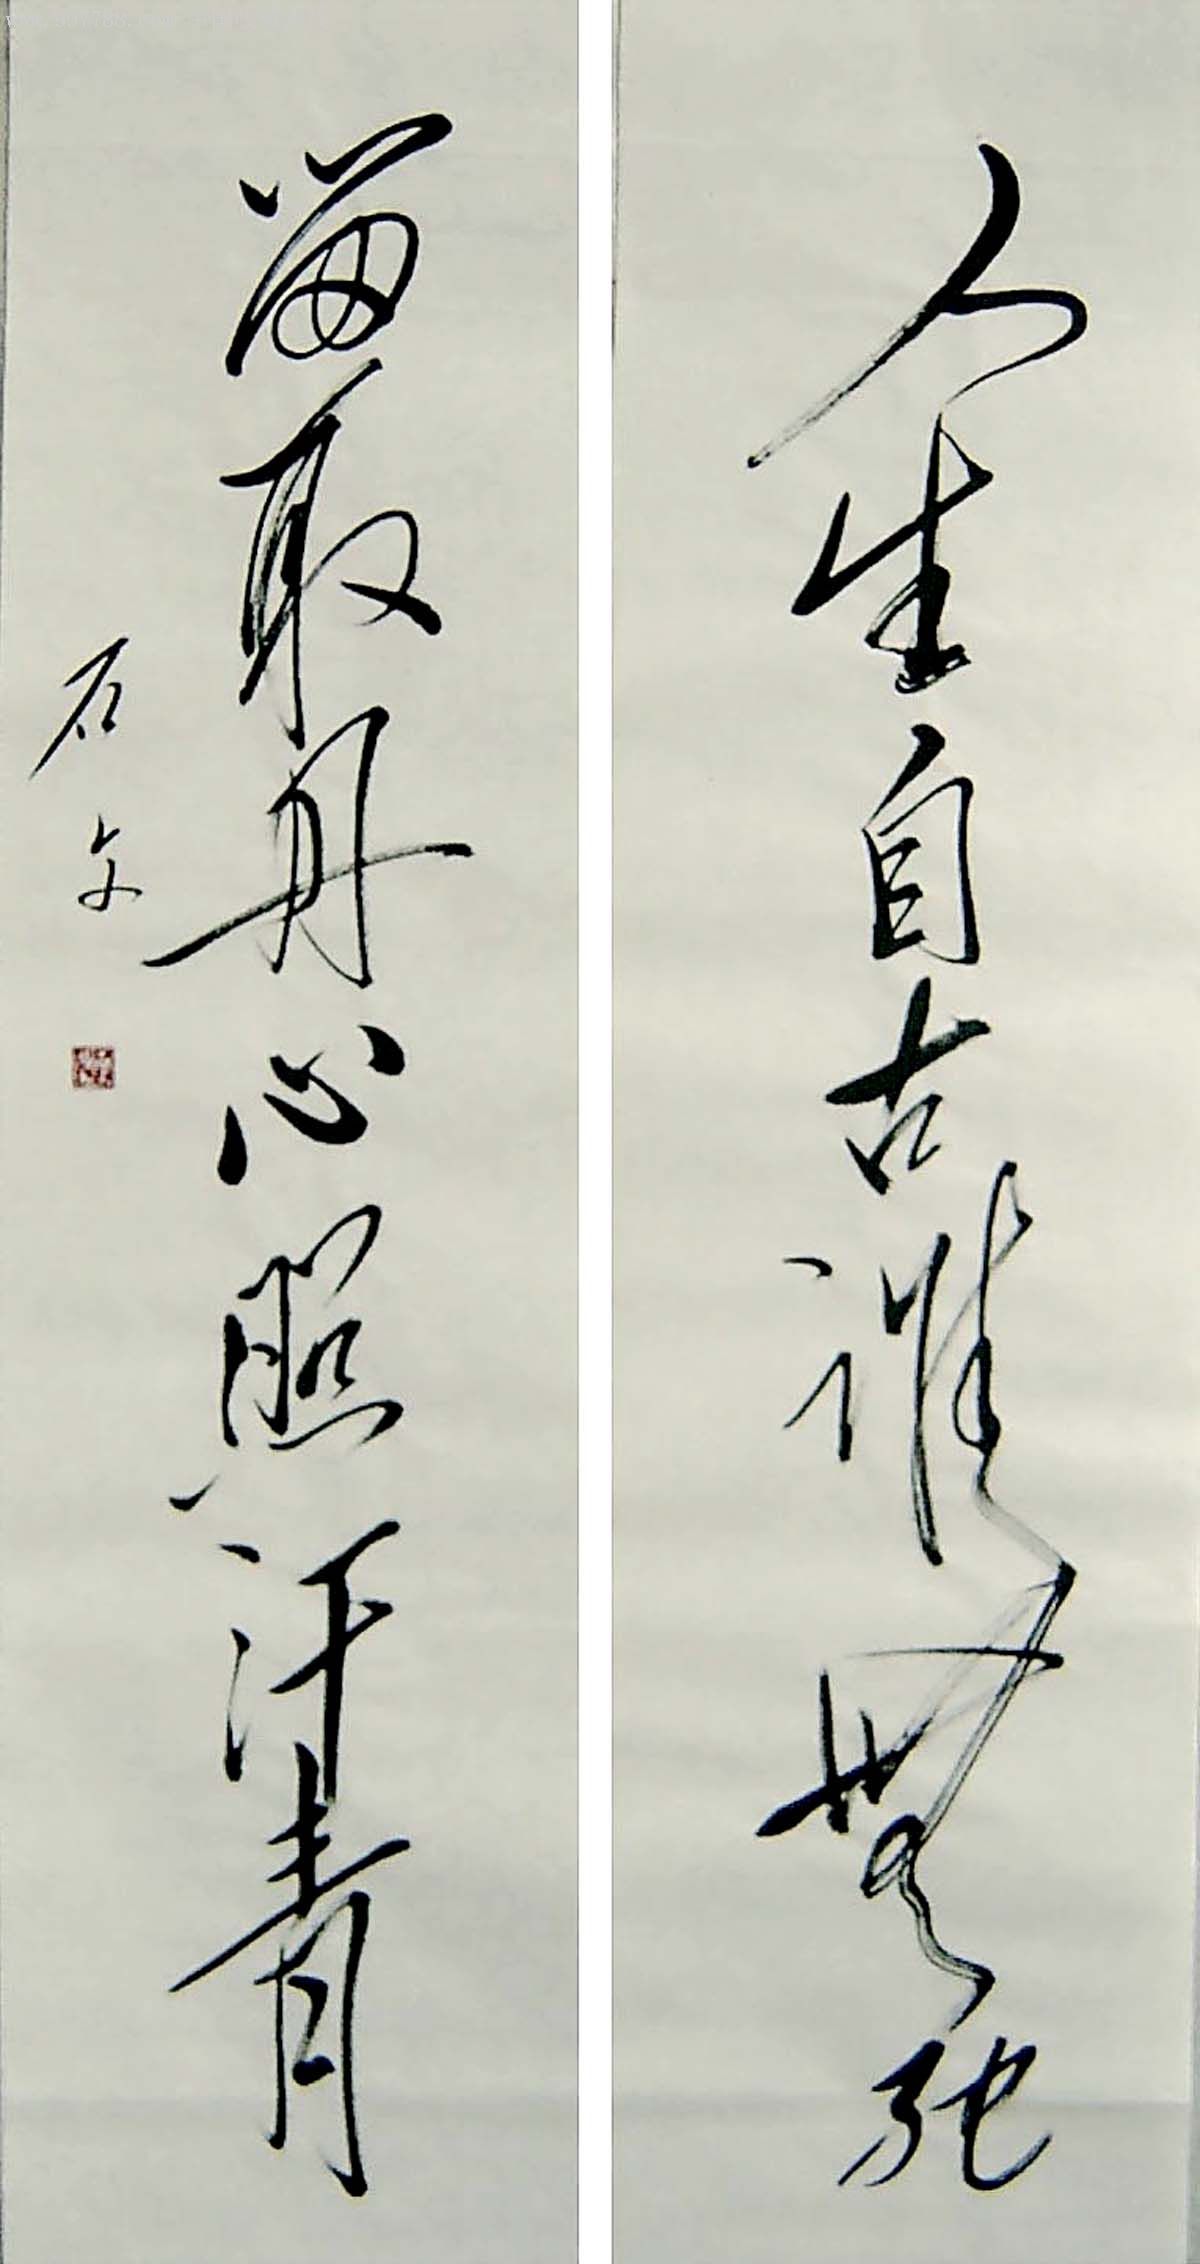 人生自古谁無死
留取丹心照汗青
石文